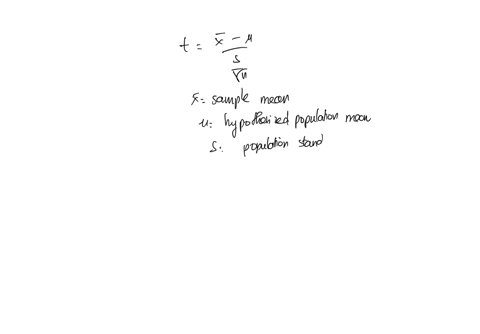 t = x̄ - μ
s
√n
x̄= sample mean
μ: hypothesized population mean
s: population stand